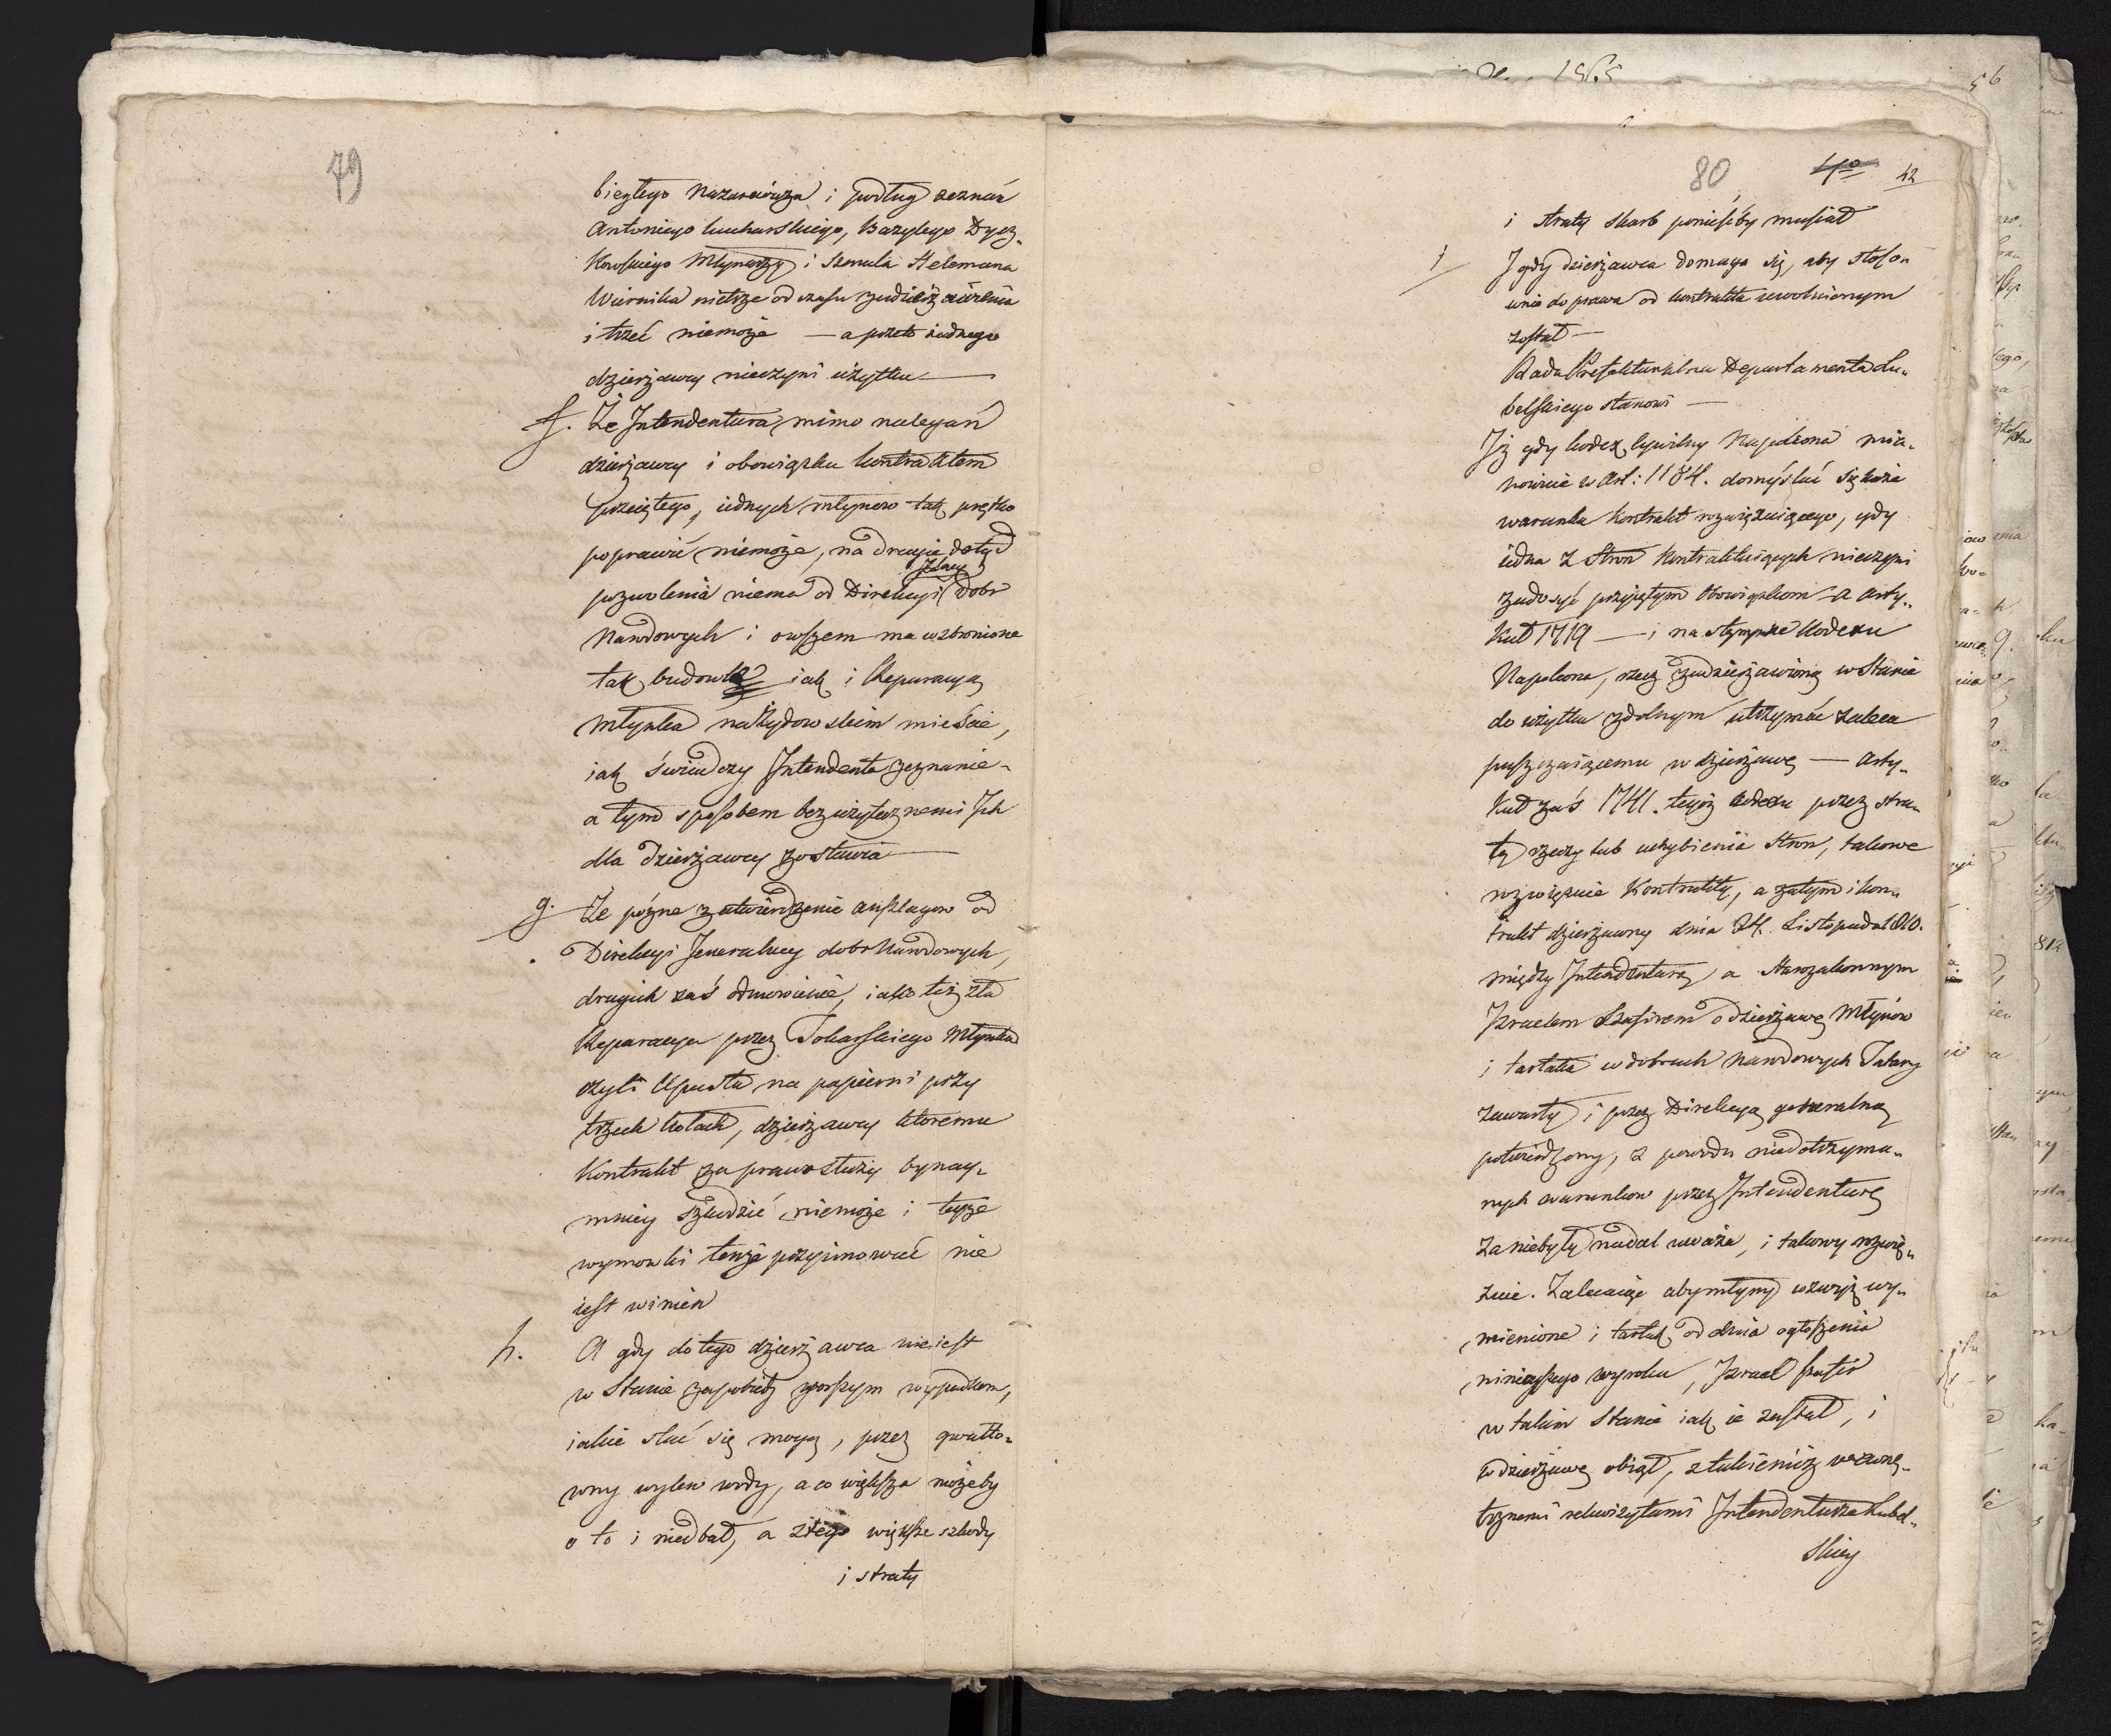 79
biegłego Nazarewicza i podług zeznań
Antoniego Kucharskiego, Bazylego Dycz„
kowskiego Młynarzy i Szmula Helemana
Wiernika nietrze od czasu zadzierżawienia
i trzeć niemoże — a przeto żadnego
dzierżawcy nieczyni użytku —
f. Że Intendentura, mimo nalegań
dzierżawcy i obowiązku kontraktem
przeiętego, iednych młynow tak prętko
poprawić niemoże, na drugie dotąd
pozwolenia niema od Direkcyi Jlney dobr
Narodowych i owszem ma wzbronione
tak budowlą iak i Reparacyą
młynka na Żydowskim mieście,
iak świadczy Intendenta zeznanie„
a tym sposobem bezużytecznemi Ich
dla dzierżawcy zostawia —
g. Że późne zatwierdzenie anszlagow od
Direkcyi Jeneralney dobr Narodowych,
drugich zaś odmowienie, iako też zła
Reparacya przez Tokarskiego Młynka
czyli Upustu na papierni przy
trzech kołach, dzierżawcy ktoremu
Kontrakt za prawo służy bynay„
mniey szkodzić niemoże i teyże
wymowki tenże przyimować nie
iest winien
h. A gdy do tego dzierżawca nie iest
w Stanie zapobiedz gorszym wypadkom,
iakie stać się mogą, przez gwałto„
wny wylew wody, a co większa możeby
o to i niedbał, a ztego większe szkody
i straty
80 42
i straty skarb ponieśćby musiał
i I gdy dzierżawca domaga się, aby stoso„
wnie do prawa od kontraktu uwolnionym
został —
Rada Prefekturalna Departamentu Lu„
belskiego stanowi —
Iż gdy kodex cywilny Napoleona mia„
nowicie w Art: 1184. domyślać się każe
warunku kontrakt rozwięzuiącego, gdy
iedna z Stron kontraktuiących nieczyni
zadosyć przyiętym Obowiązkom — a Arty„
kuł 1719 — i następne Kodexu
Napoleona, rzecz zadzierżawioną w Stanie
do użytku zdolnym utrzymać zaleca
puszczaiącemu w dzierżawę — Arty„
kuł zaś 1741. tegoż kodexu przez stra„
tę rzeczy lub uchybienia Stron, takowe
rozwięzuie Kontrakty, a zatym i kon„
trakt dzierżawny dnia 24. Listopada 1810.
między Intendenturą a Starozakonnym
Izraelem Szafirem o dzierżawę Młynów
i tartaka w dobrach Narodowych Tatary
zawarty i przez Direkcyą generalną
potwierdzony, z powodu niedotrzyma„
nych warunkow przez Intendenturę
za niebyły nadal uważa, i takowy rozwię„
zuie. Zalecaiąc aby młyny wzwyż wy„
mienione i tartak od dnia ogłoszenia
ninieyszego wyroku, Izrael Szafir
w takim Stanie iak ie zastał, i
w dzierżawę obiął, z takiemiż wewnę„
trznemi rekwizytami Intendenturze Lubel„
skiey